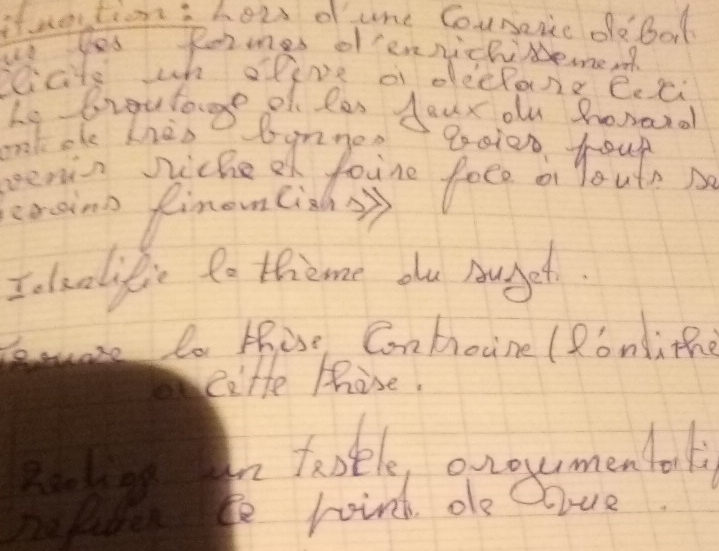 ituation: Lors d'une Causerie débat
sur les formes d'enrichissement
illicite un élève a déclaré Ceci
Le broutage et les Jeux du hasard
sont de très bonnes voies pour
devenir riche et faire face à touts se
besoins financiers»
Identifie le thème du sujet.
Trouve la thèse Contraire (l'antithè
à cette thèse.
Rédige un texte argumentatif
refuter ce point de vue.